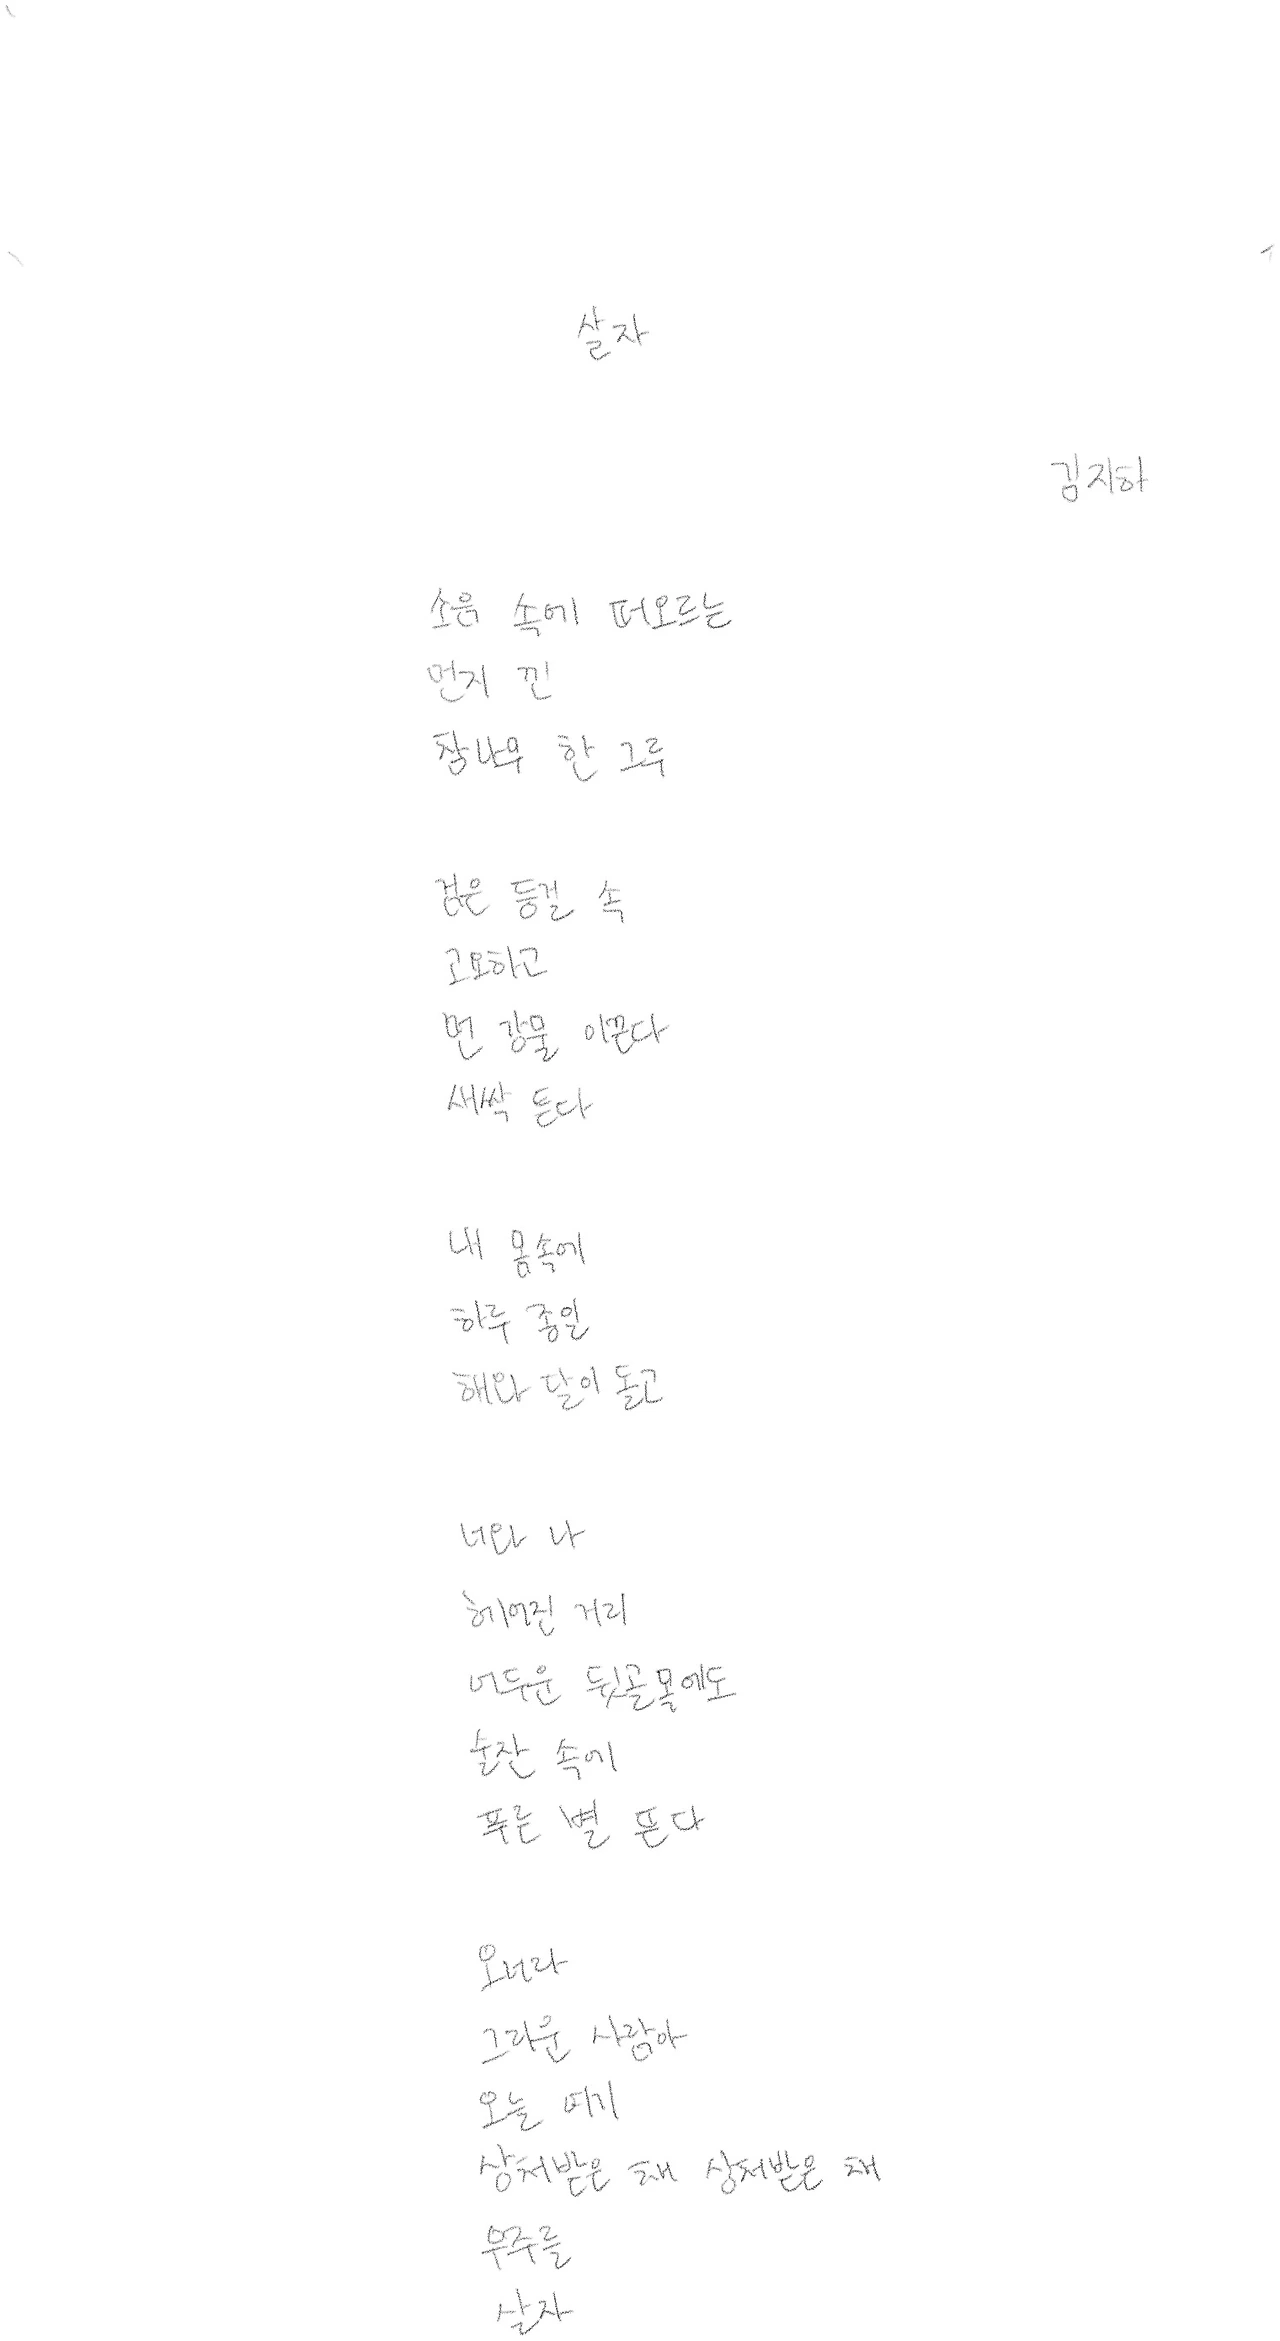 살자
김지하
소음 속에 떠오르는
먼지 낀
참나무 한 그루
검은 등걸 속
고요하고
먼 강물 이끈다
새싹 튼다
내 몸속에
하루 종일
해와 달이 돌고
너와 나
헤어진 거리
어두운 뒷골목에도
술잔 속에
푸른 별 뜬다
오너라
그리운 사람아
오늘 여기
상처받은 채 상처받은 채
우주를
살자